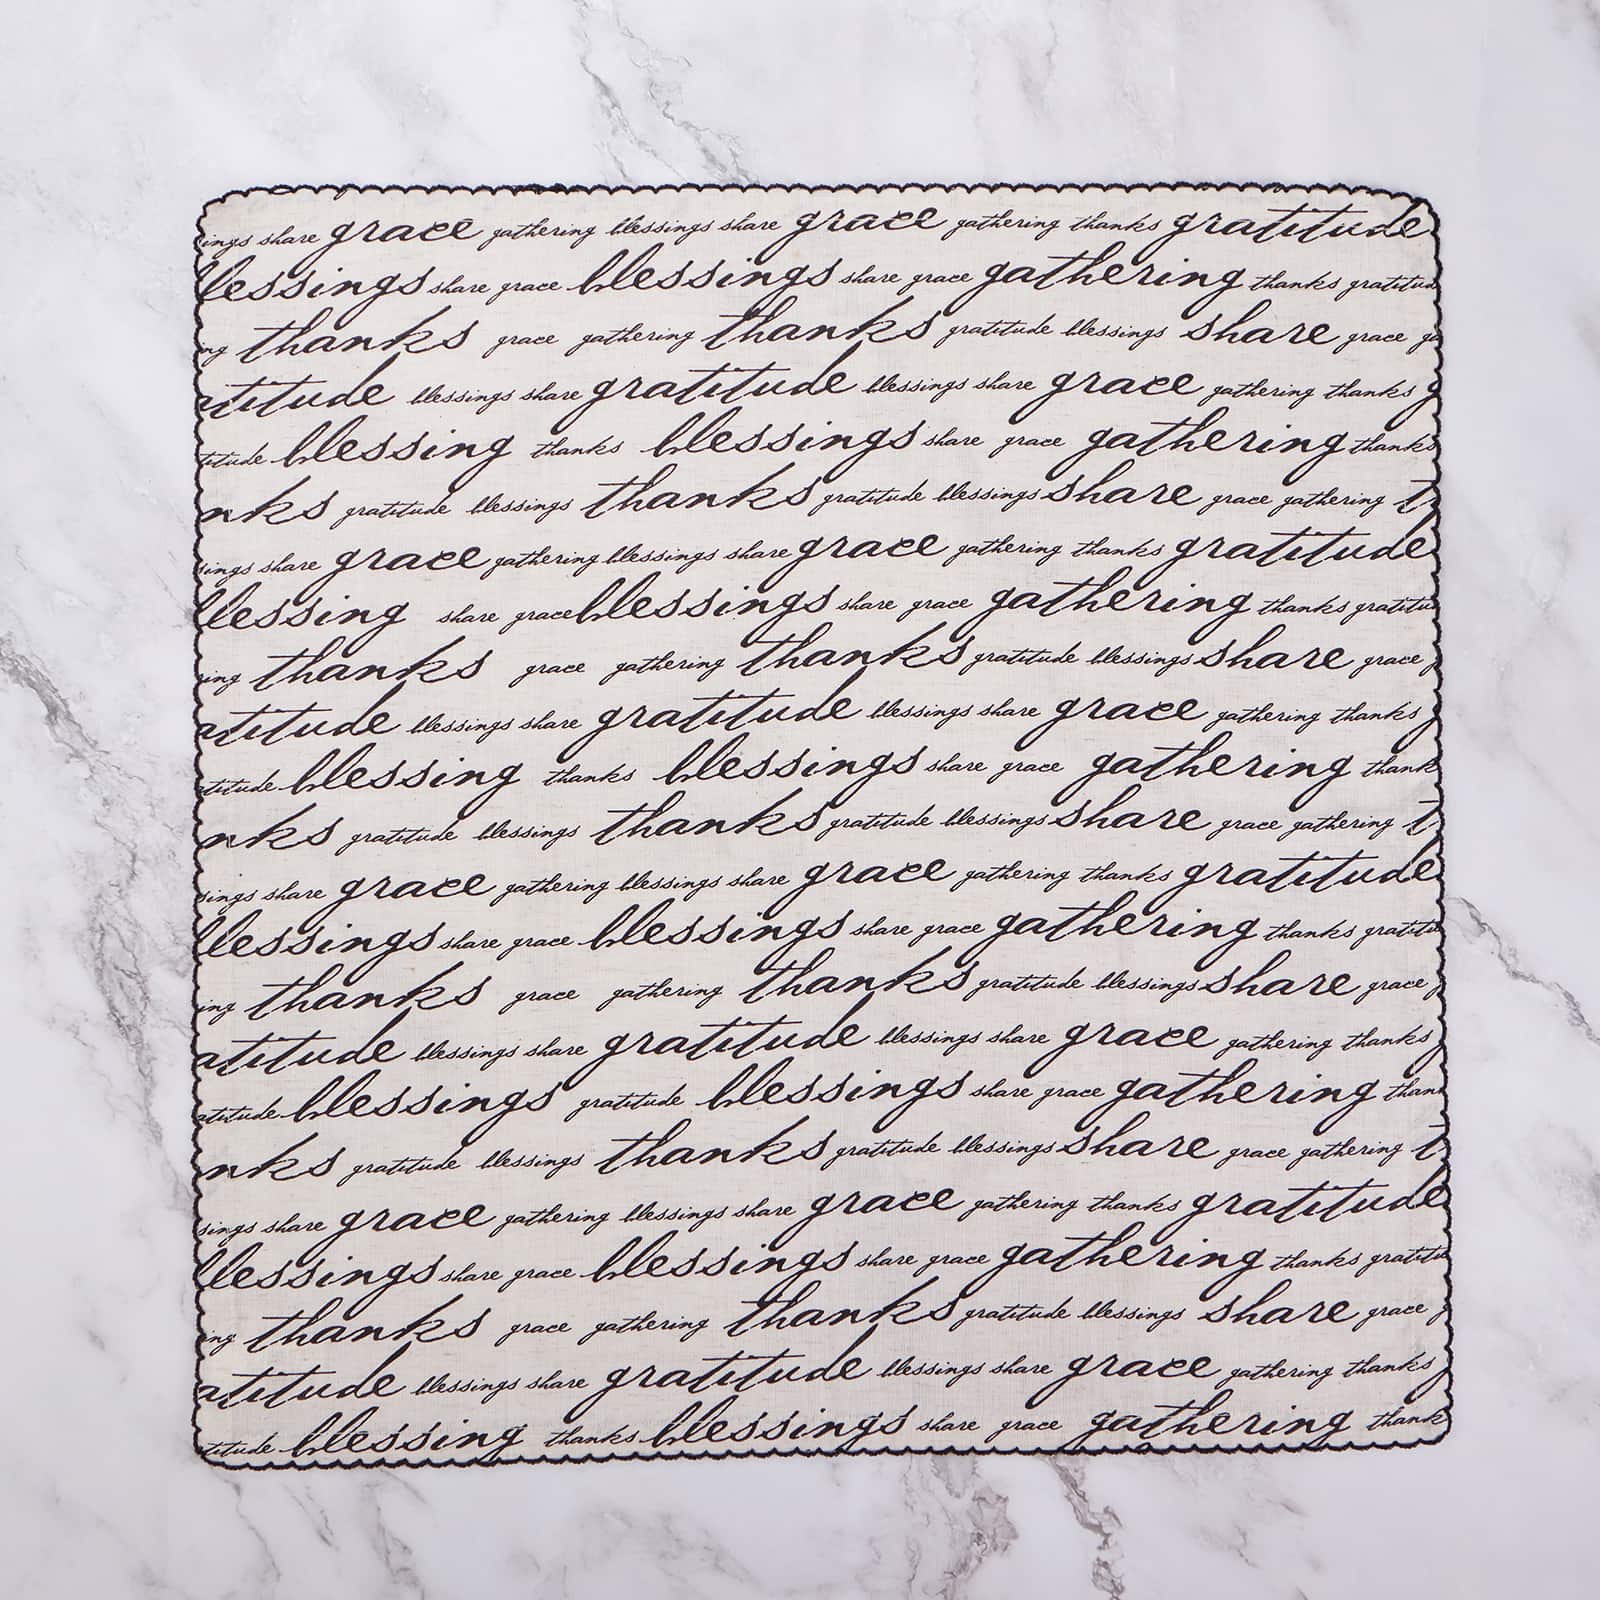 ings share grace gathering blessings share grace gathering thanks gratitude
blessings share grace blessings share grace gathering thanks gratitud
ng thanks grace gathering thanks gratitude blessings share grace ga
atitude blessings share gratitude blessings share grace gathering thanks g
titude blessing thanks blessings share grace gathering thanks
nks gratitude blessings thanks gratitude blessings share grace gathering t
sings share grace gathering blessings share grace gathering thanks gratitude
blessing share grace blessings share grace gathering thanks gratitu
ing thanks grace gathering thanks gratitude blessings share grace
atitude blessings share gratitude blessings share grace gathering thanks
titude blessing thanks blessings share grace gathering thank
nks gratitude blessings thanks gratitude blessings share grace gathering t
sings share grace gathering blessings share grace gathering thanks gratitude
blessings share grace blessings share grace gathering thanks gratitu
ing thanks grace gathering thanks gratitude blessings share grace
atitude blessings share gratitude blessings share grace gathering thanks
atitude blessings gratitude blessings share grace gathering than
nks gratitude blessings thanks gratitude blessings share grace gathering t
sings share grace gathering blessings share grace gathering thanks gratitude
blessings share grace blessings share grace gathering thanks gratitu
ing thanks grace gathering thanks gratitude blessings share grace
atitude blessings share gratitude blessings share grace gathering thanks
titude blessing thanks blessings share grace gathering thank